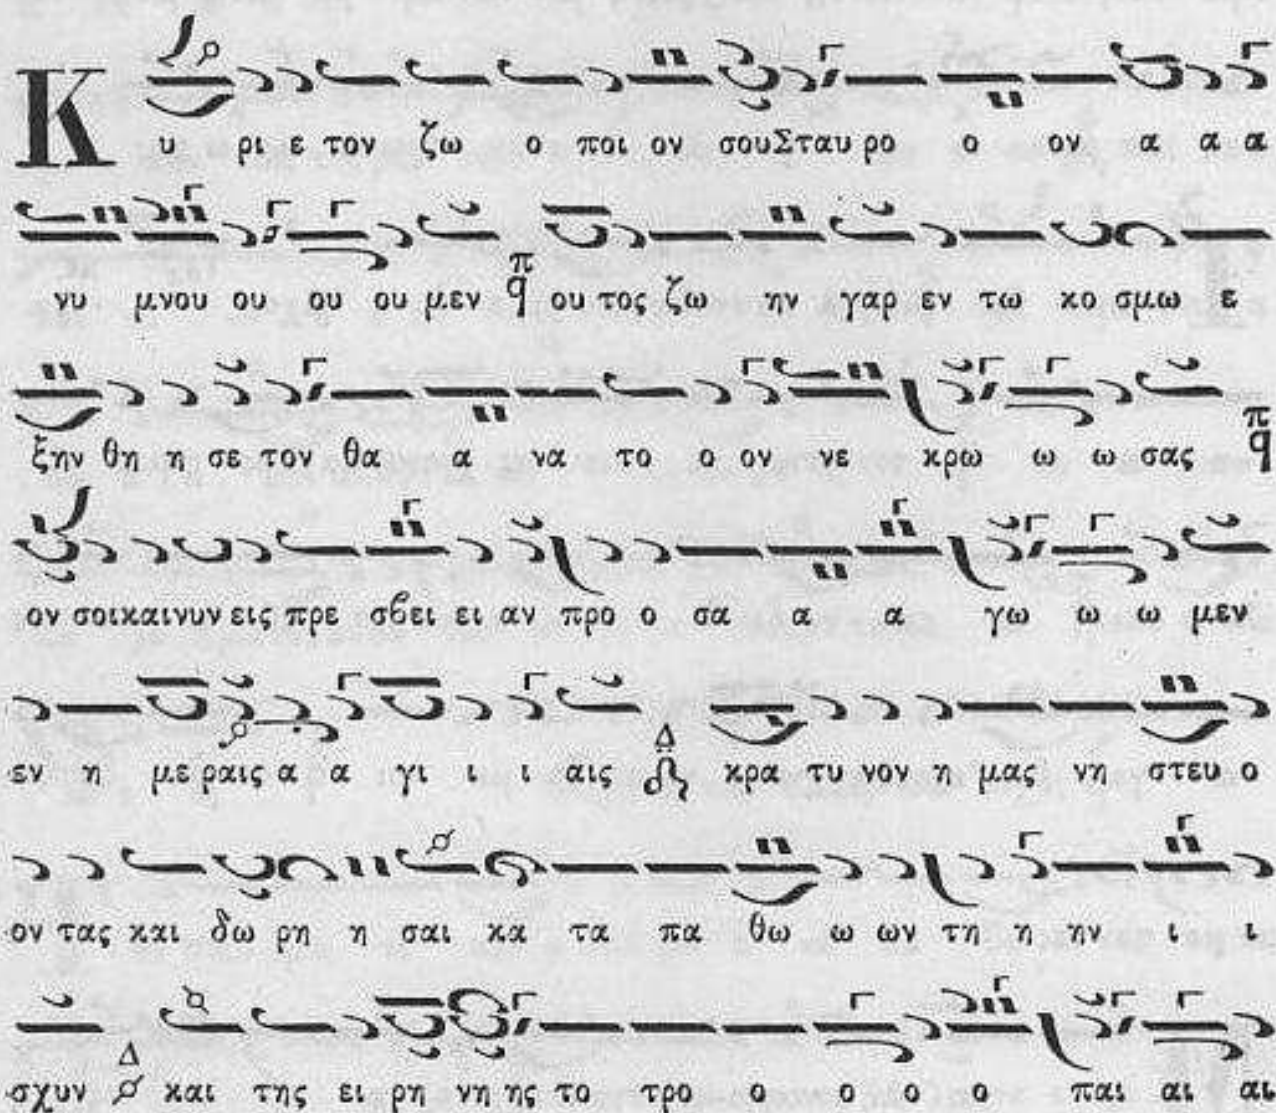 Κ υ ρι ε τον ζω ο ποι ον σου Σταυ ρο ο ον α α α
νυ μνου ου ου ου μεν π q ου τος ζω ην γαρ εν τω κο σμω ε
ξην θη η σε τον θα α να το ο ον νε κρω ω ω σας π q
ον σοι και νυν εις πρε σβει ει αν προ ο σα α α γω ω ω μεν
εν η με ραις α α γι ι ι αις Δ κρα τυ νον η μας νη στευ ο
ον τας και δω ρη η σαι κα τα πα θω ω ων τη η ην ι ι
σχυν Δ και της ει ρη νη ης το τρο ο ο ο ο παι αι αι